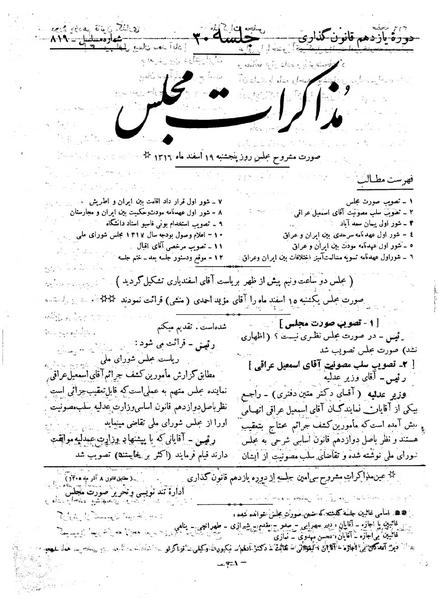 دورهٔ یازدهم قانون گذاری
جلسه ۳۰
شماره مسلسل - ۸۱۹
مذاکرات مجلس
صورت مشروح مجلس روز پنجشنبه ۱۹ اسفند ماه ۱۳۱۶
فهرست مطالب
۱ - تصویب صورت مجلس
۲ - تصویب سلب مصونیت آقای اسمعیل عراقی
۳ - شور اول پیمان سعد آباد
۴ - شور اول عهدنامه سرحدی بین ایران و عراق
۵ - شور اول عهدنامه مودت بین ایران و عراق
۶ - شور اول عهدنامه تسویه مسالمت‌آمیز اختلافات بین ایران و عراق
۷ - شور اول قرار داد اقامت بین ایران و اطریش
۸ - شور اول عهدنامه مودت و حکمیت بین ایران و مجارستان
۹ - تصویب استخدام بونی فاسیو استاد دانشگاه
۱۰ - اعلام وصول بودجه سال ۱۳۱۷ مجلس شورای ملی
۱۱ - تصویب مرخصی آقای اقبال
۱۲ - موقع و دستور جلسه بعد - ختم جلسه
( مجلس دو ساعت ونیم پیش از ظهر بریاست آقای اسفندیاری تشکیل گردید )
صورت مجلس یکشنبه ۱۵ اسفند ماه را آقای مؤید احمدی (منشی) قرائت نمودند
[ ۱ - تصویب صورت مجلس ]
رئیس - در صورت مجلس نظری نیست ؟ ( اظهاری
نشد ) صورت مجلس تصویب شد
[ ۲ - تصویب سلب مصونیت آقای اسمعیل عراقی ]
رئیس - آقای وزیر عدلیه
وزیر عدلیه ( آقای دکتر متین دفتری ) - راجع
بیکی از آقایان نمایندگان آقای اسمعیل عراقی اتهامی
پیش آمده است که مأمورین کشف جرائم محتاج بتعقیب
هستند و نظر باصل دوازدهم قانون اساسی شرحی به مجلس
شورای ملی نوشته شده و تقاضای سلب مصونیت از ایشان
شده‌است . تقدیم میکنم
رئیس - قرائت می شود :
ریاست مجلس شورای ملی
مطابق گزارش مأمورین کشف جرائم آقای اسمعیل عراقی
نماینده مجلس متهم به عملی است که قابل تعقیب جزائی است
نظر باصل دوازدهم قانون اساسی وزارت عدلیه سلب مصونیت
اورا از مجلس شورای ملی تقاضی مینماید
رئیس - آقایانی که با پیشنهاد وزارت عدلیه موافقت
دارند قیام فرمایند ( اکثر بر خاستند ) تصویب شد
عین مذاکرات مشروح سی امین جلسه از دوره یازدهم قانون گذاری
( مطابق قانون ۸ آذر ماه ۱۳۰۵ )
اداره تند نویسی و تحریر صورت مجلس
اسامی غائبین جلسه گذشته که ضمن صورت مجلس خوانده شده :
غائبین با اجازه - آقایان :
غائبین بی اجازه - آقایان : محسن مهدوی - نمازی